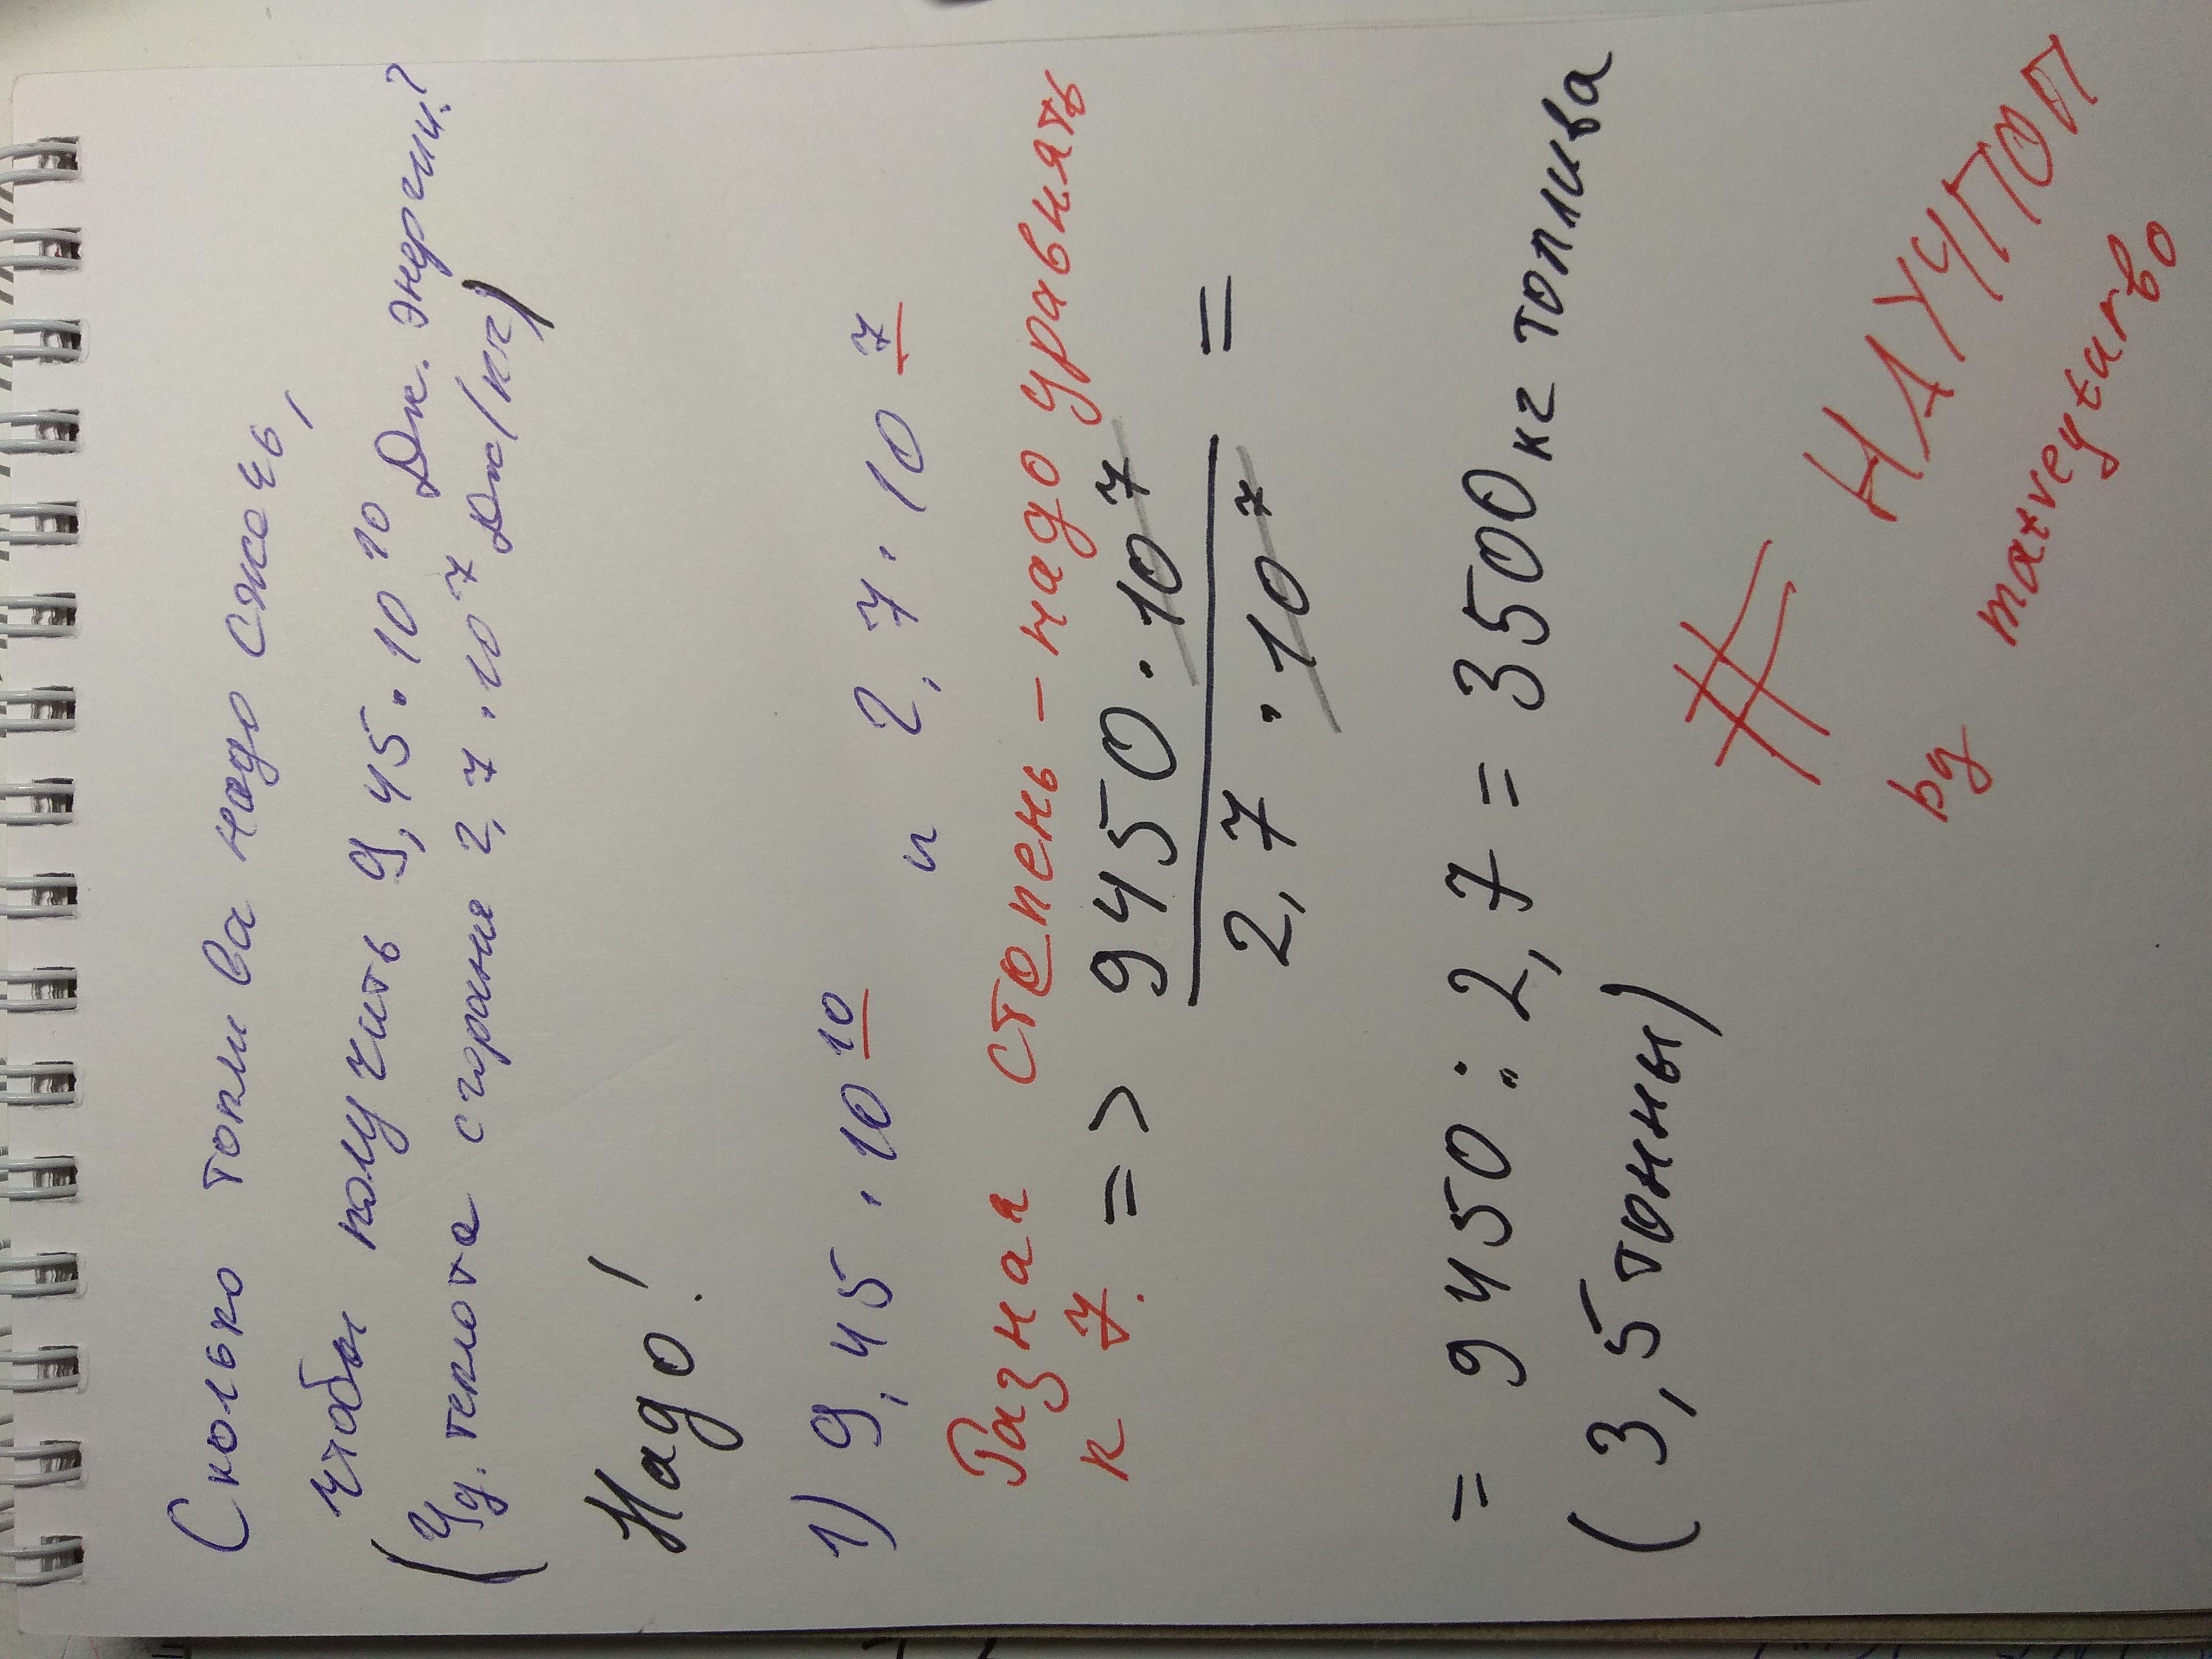 Сколько топлива надо сжечь,
чтобы получить 9,45·10¹⁰ Дж. энергии?
(Уд. теплота сгорания 2,7·10⁷ Дж/кг)
Надо!
1) 9,45·10¹⁰ и 2,7·10⁷
Разная степень - надо уравнять
к 7. => 9450·10⁷ / 2,7·10⁷ =
= 9450 : 2,7 = 3500 кг топлива
(3,5 тонны)
# НАУЧПОП
by matveyturbo